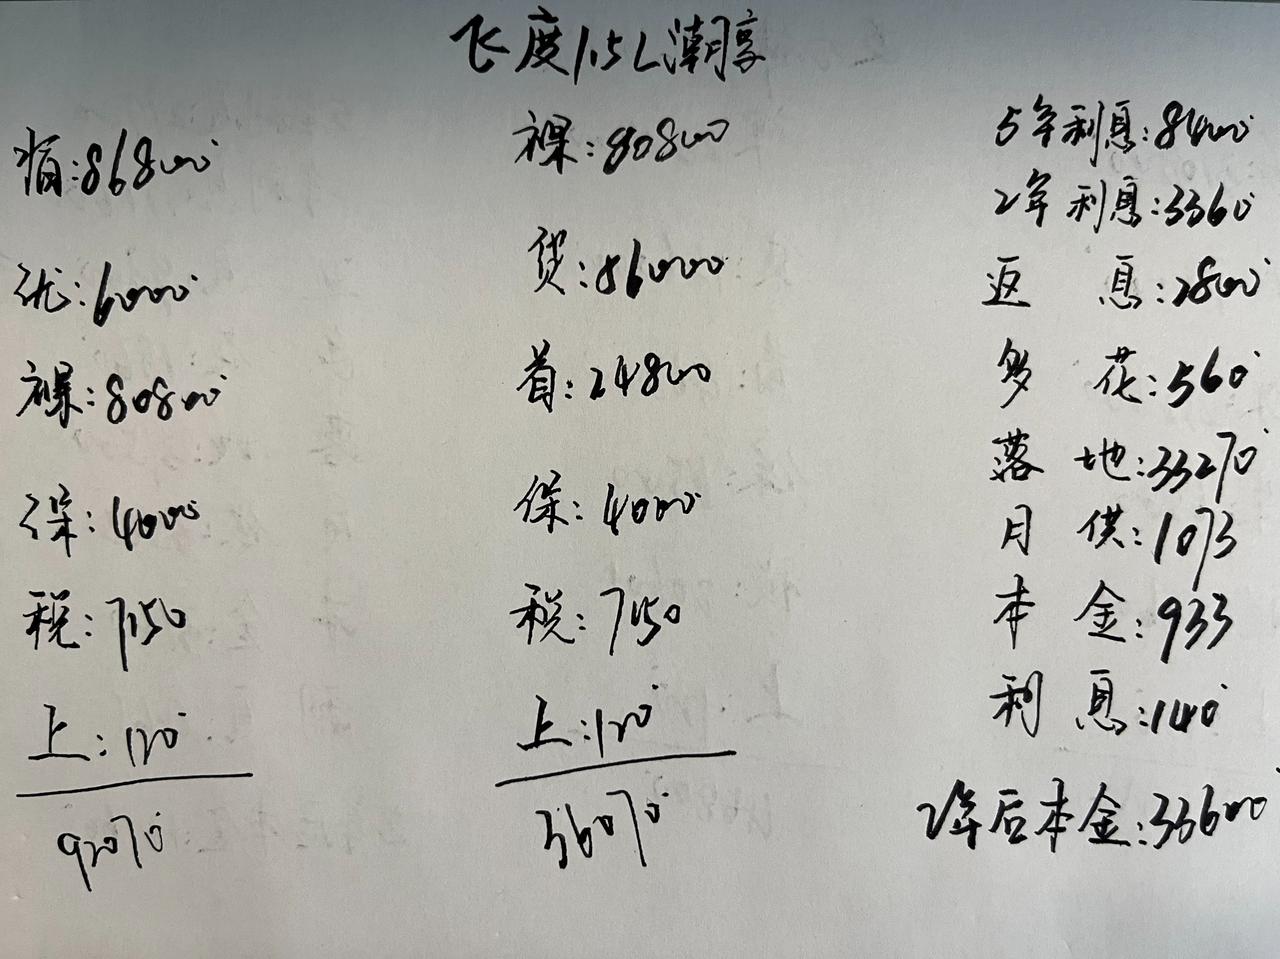 飞度1.5L潮享
指:86800
优:6000
裸:80800
保:4000
税:7150
上:120
92070
裸:80800
贷:56000
首:24800
保:4000
税:7150
上:120
36070
5年利息:8400
2年利息:3360
返息:2800
多花:560
落地:33270
月供:1073
本金:933
利息:140
2年后本金:33600